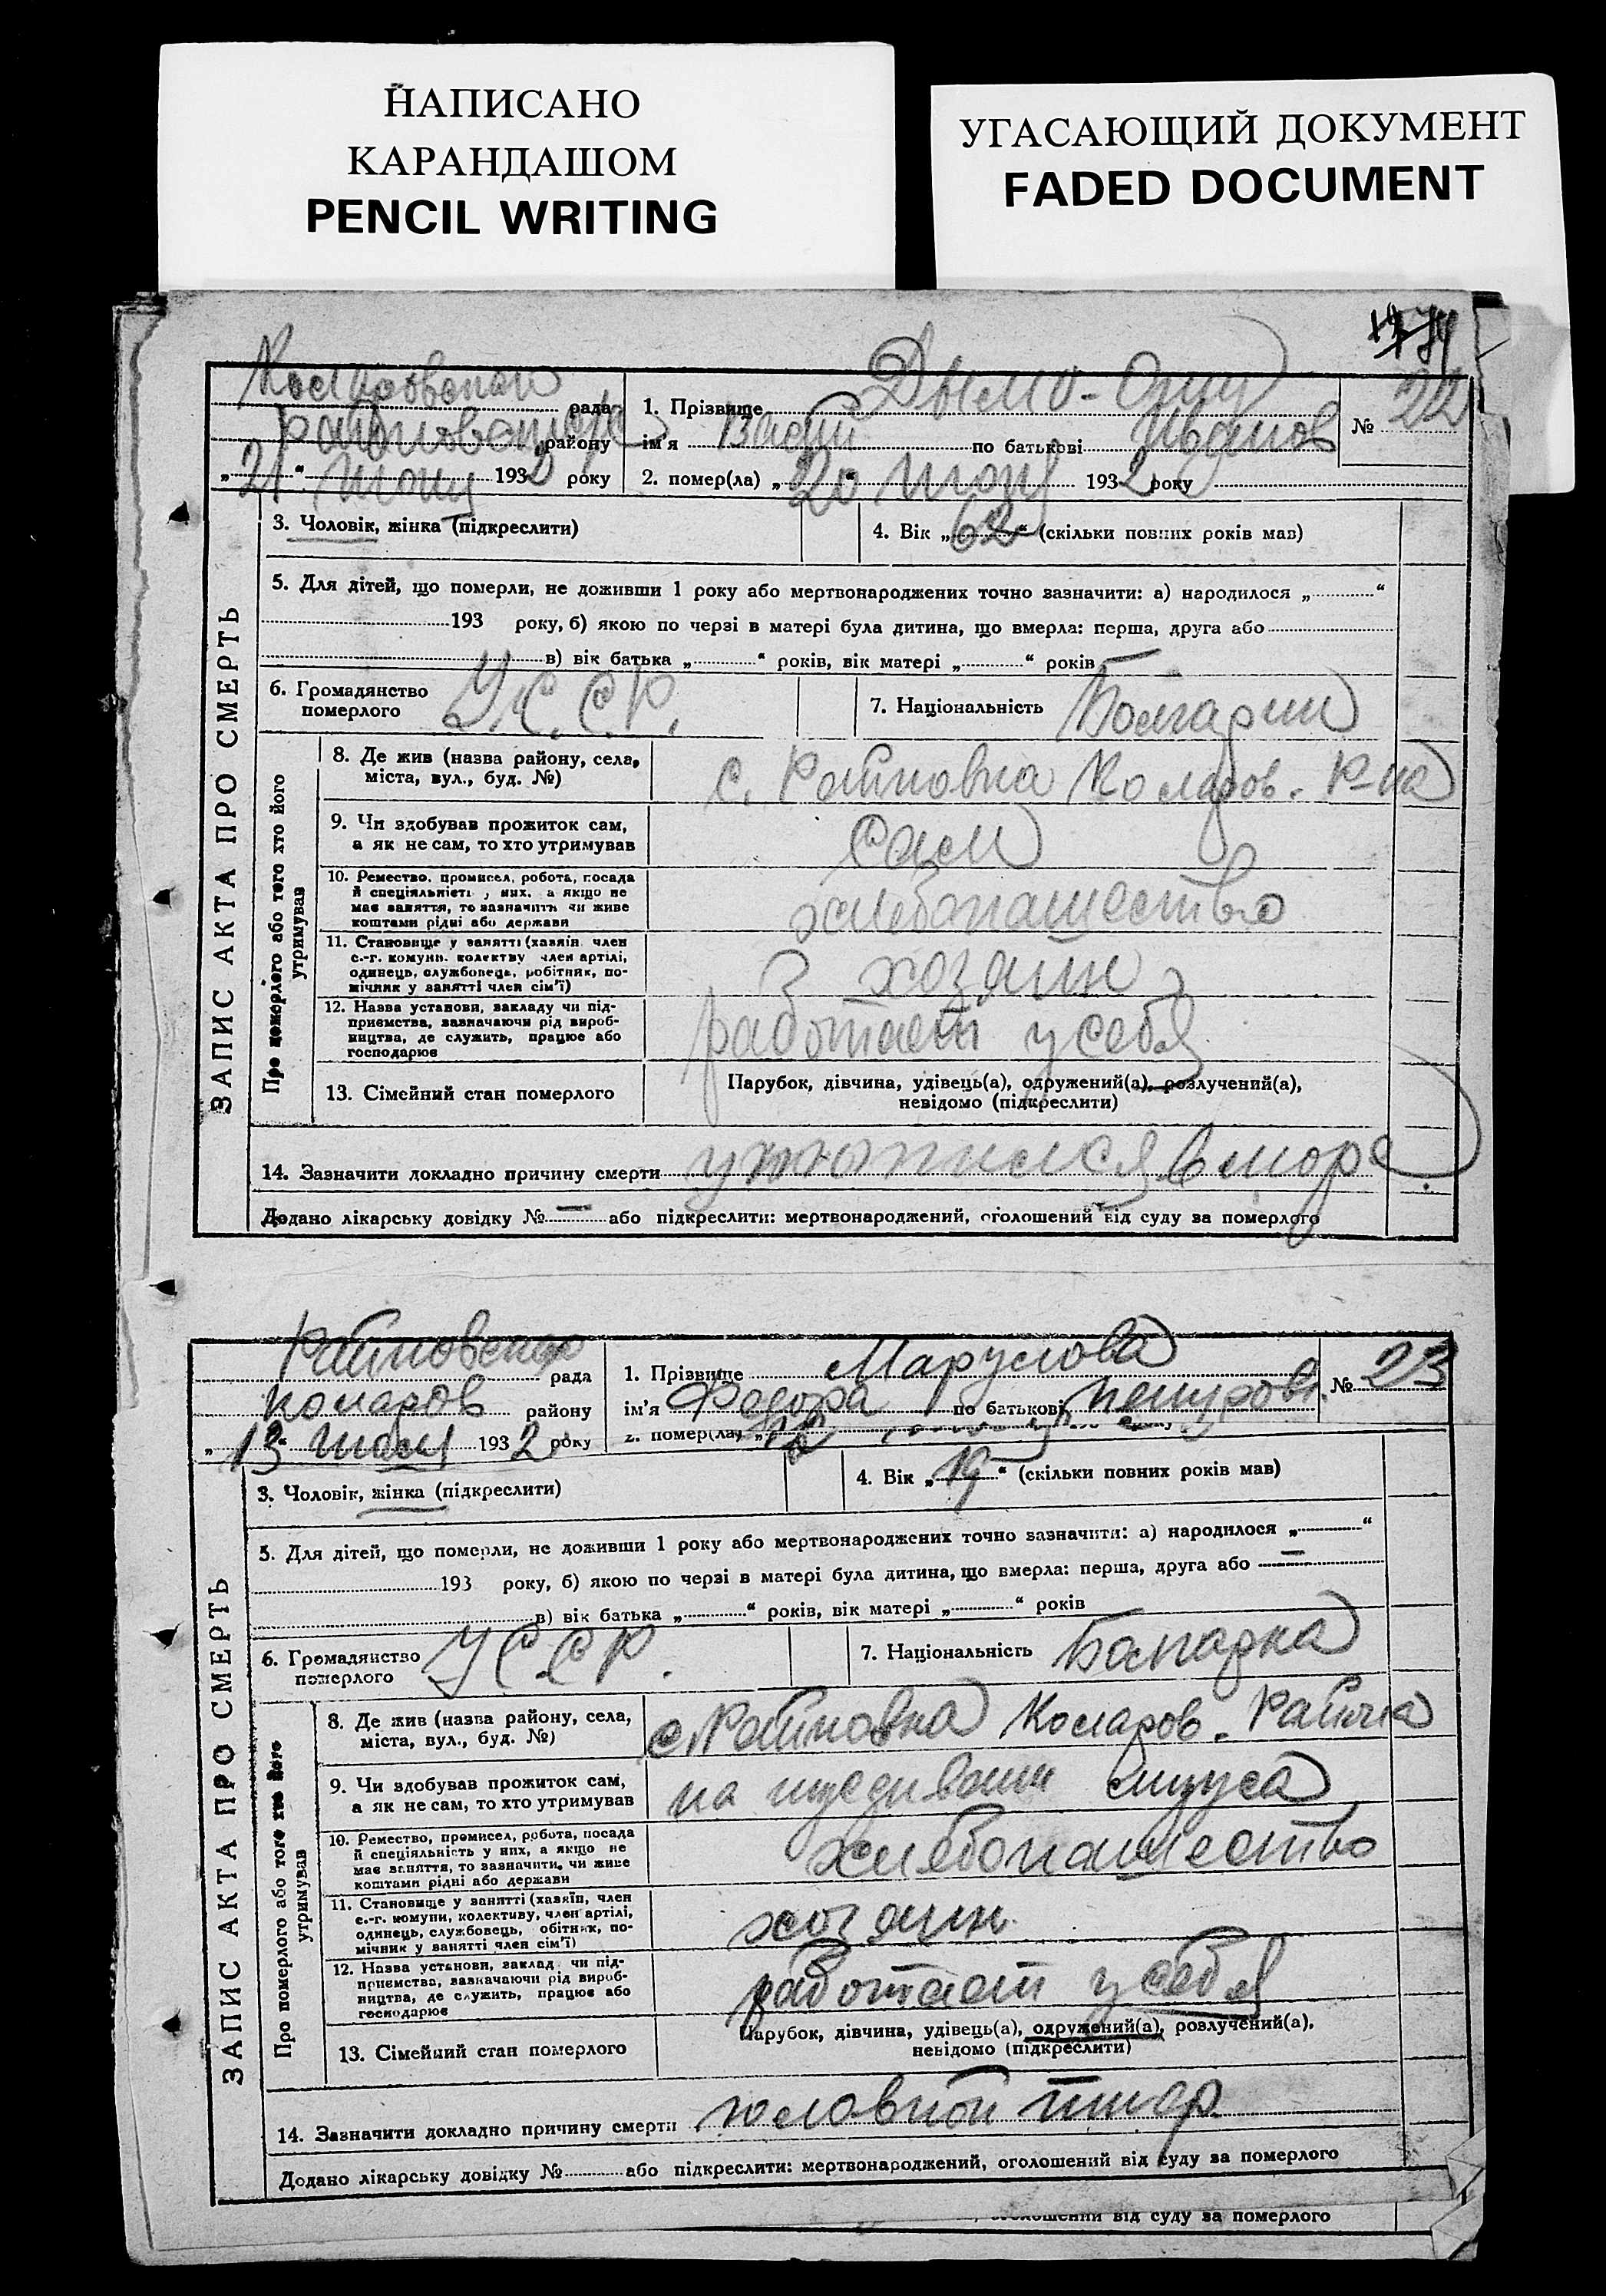 НАПИСАНО
КАРАНДАШОМ
PENCIL WRITING
УГАСАЮЩИЙ ДОКУМЕНТ
FADED DOCUMENT
ЗАПИС АКТА ПРО СМЕРТЬ
рада
району
„21“ 1932 року
1. Прізвище Дымо-Оглу
№ 22
ім'я Вадім по батькові Иванов
2. помер(ла) „20 1932 року
3. Чоловік, жінка (підкреслити)
4. Вік „62“ (скільки повних років мав)
5. Для дітей, що померли, не доживши 1 року або мертвонароджених точно зазначити: а) народилося „ “
193 року, б) якою по черзі в матері була дитина, що вмерла: перша, друга або
в) вік батька „ “ років, вік матері „ “ років —
6. Громадянство померлого У.С.С.Р.
7. Національність Болгарин
Про померлого або того хто його утримував
8. Де жив (назва району, села,
міста, вул., буд. №)
с. Райновка Коларов. р-на
9. Чи здобував прожиток сам,
а як не сам, то хто утримував
сам
10. Ремество, промисел, робота, посада
й спеціяльність у них, а якщо не
має заняття, то зазначить чи живе
коштами рідні або держави
хлебопашество
11. Становище у занятті (хазяїн, член
с.-г. комуни, колективу член артілі,
одинець, службовець, робітник, по-
мічник у занятті член сім'ї)
хозяин
12. Назва установи, закладу чи під-
приємства, зазначаючи рід вироб-
ництва, де служить, працює або
господарює
работает у себя
13. Сімейний стан померлого
Парубок, дівчина, удівець(а), одружений(а), розлучений(а),
невідомо (підкреслити)
14. Зазначити докладно причину смерти утопился в море
Додано лікарську довідку № — або підкреслити: мертвонароджений, оголошений від суду за померлого
ЗАПИС АКТА ПРО СМЕРТЬ
Райновская рада
Коларов району
„13“ 1932 року
1. Прізвище Маруслова
№ 23
ім'я Федора по батькові
2. помер(ла) „12
3. Чоловік, жінка (підкреслити)
4. Вік „19“ (скільки повних років мав)
5. Для дітей, що померли, не доживши 1 року або мертвонароджених точно зазначити: а) народилося „ “
193 року, б) якою по черзі в матері була дитина, що вмерла: перша, друга або —
в) вік батька „ “ років, вік матері „ “ років
6. Громадянство померлого УССР.
7. Національність Болгарка
Про померлого або того хто його утримував
8. Де жив (назва району, села,
міста, вул., буд. №)
с. Райновка Коларов. Района
9. Чи здобував прожиток сам,
а як не сам, то хто утримував
на иждивении мужа
10. Ремество, промисел, робота, посада
й спеціяльність у них, а якщо не
має заняття, то зазначити, чи живе
коштами рідні або держави
хлебопашество
11. Становище у занятті (хазяїн, член
с.-г. комуни, колективу, член артілі,
одинець, службовець, обітник, по-
мічник у занятті член сім'ї)
хозяин
12. Назва установи, заклад чи під-
приємства, зазначаючи рід вироб-
ництва, де служить, працює або
господарює
работает у себя
13. Сімейний стан померлого
Парубок, дівчина, удівець(а), одружений(а), розлучений(а),
невідомо (підкреслити)
14. Зазначити докладно причину смерти головной тиф
Додано лікарську довідку № або підкреслити: мертвонароджений, оголошений від суду за померлого
оголошений від суду за померлого